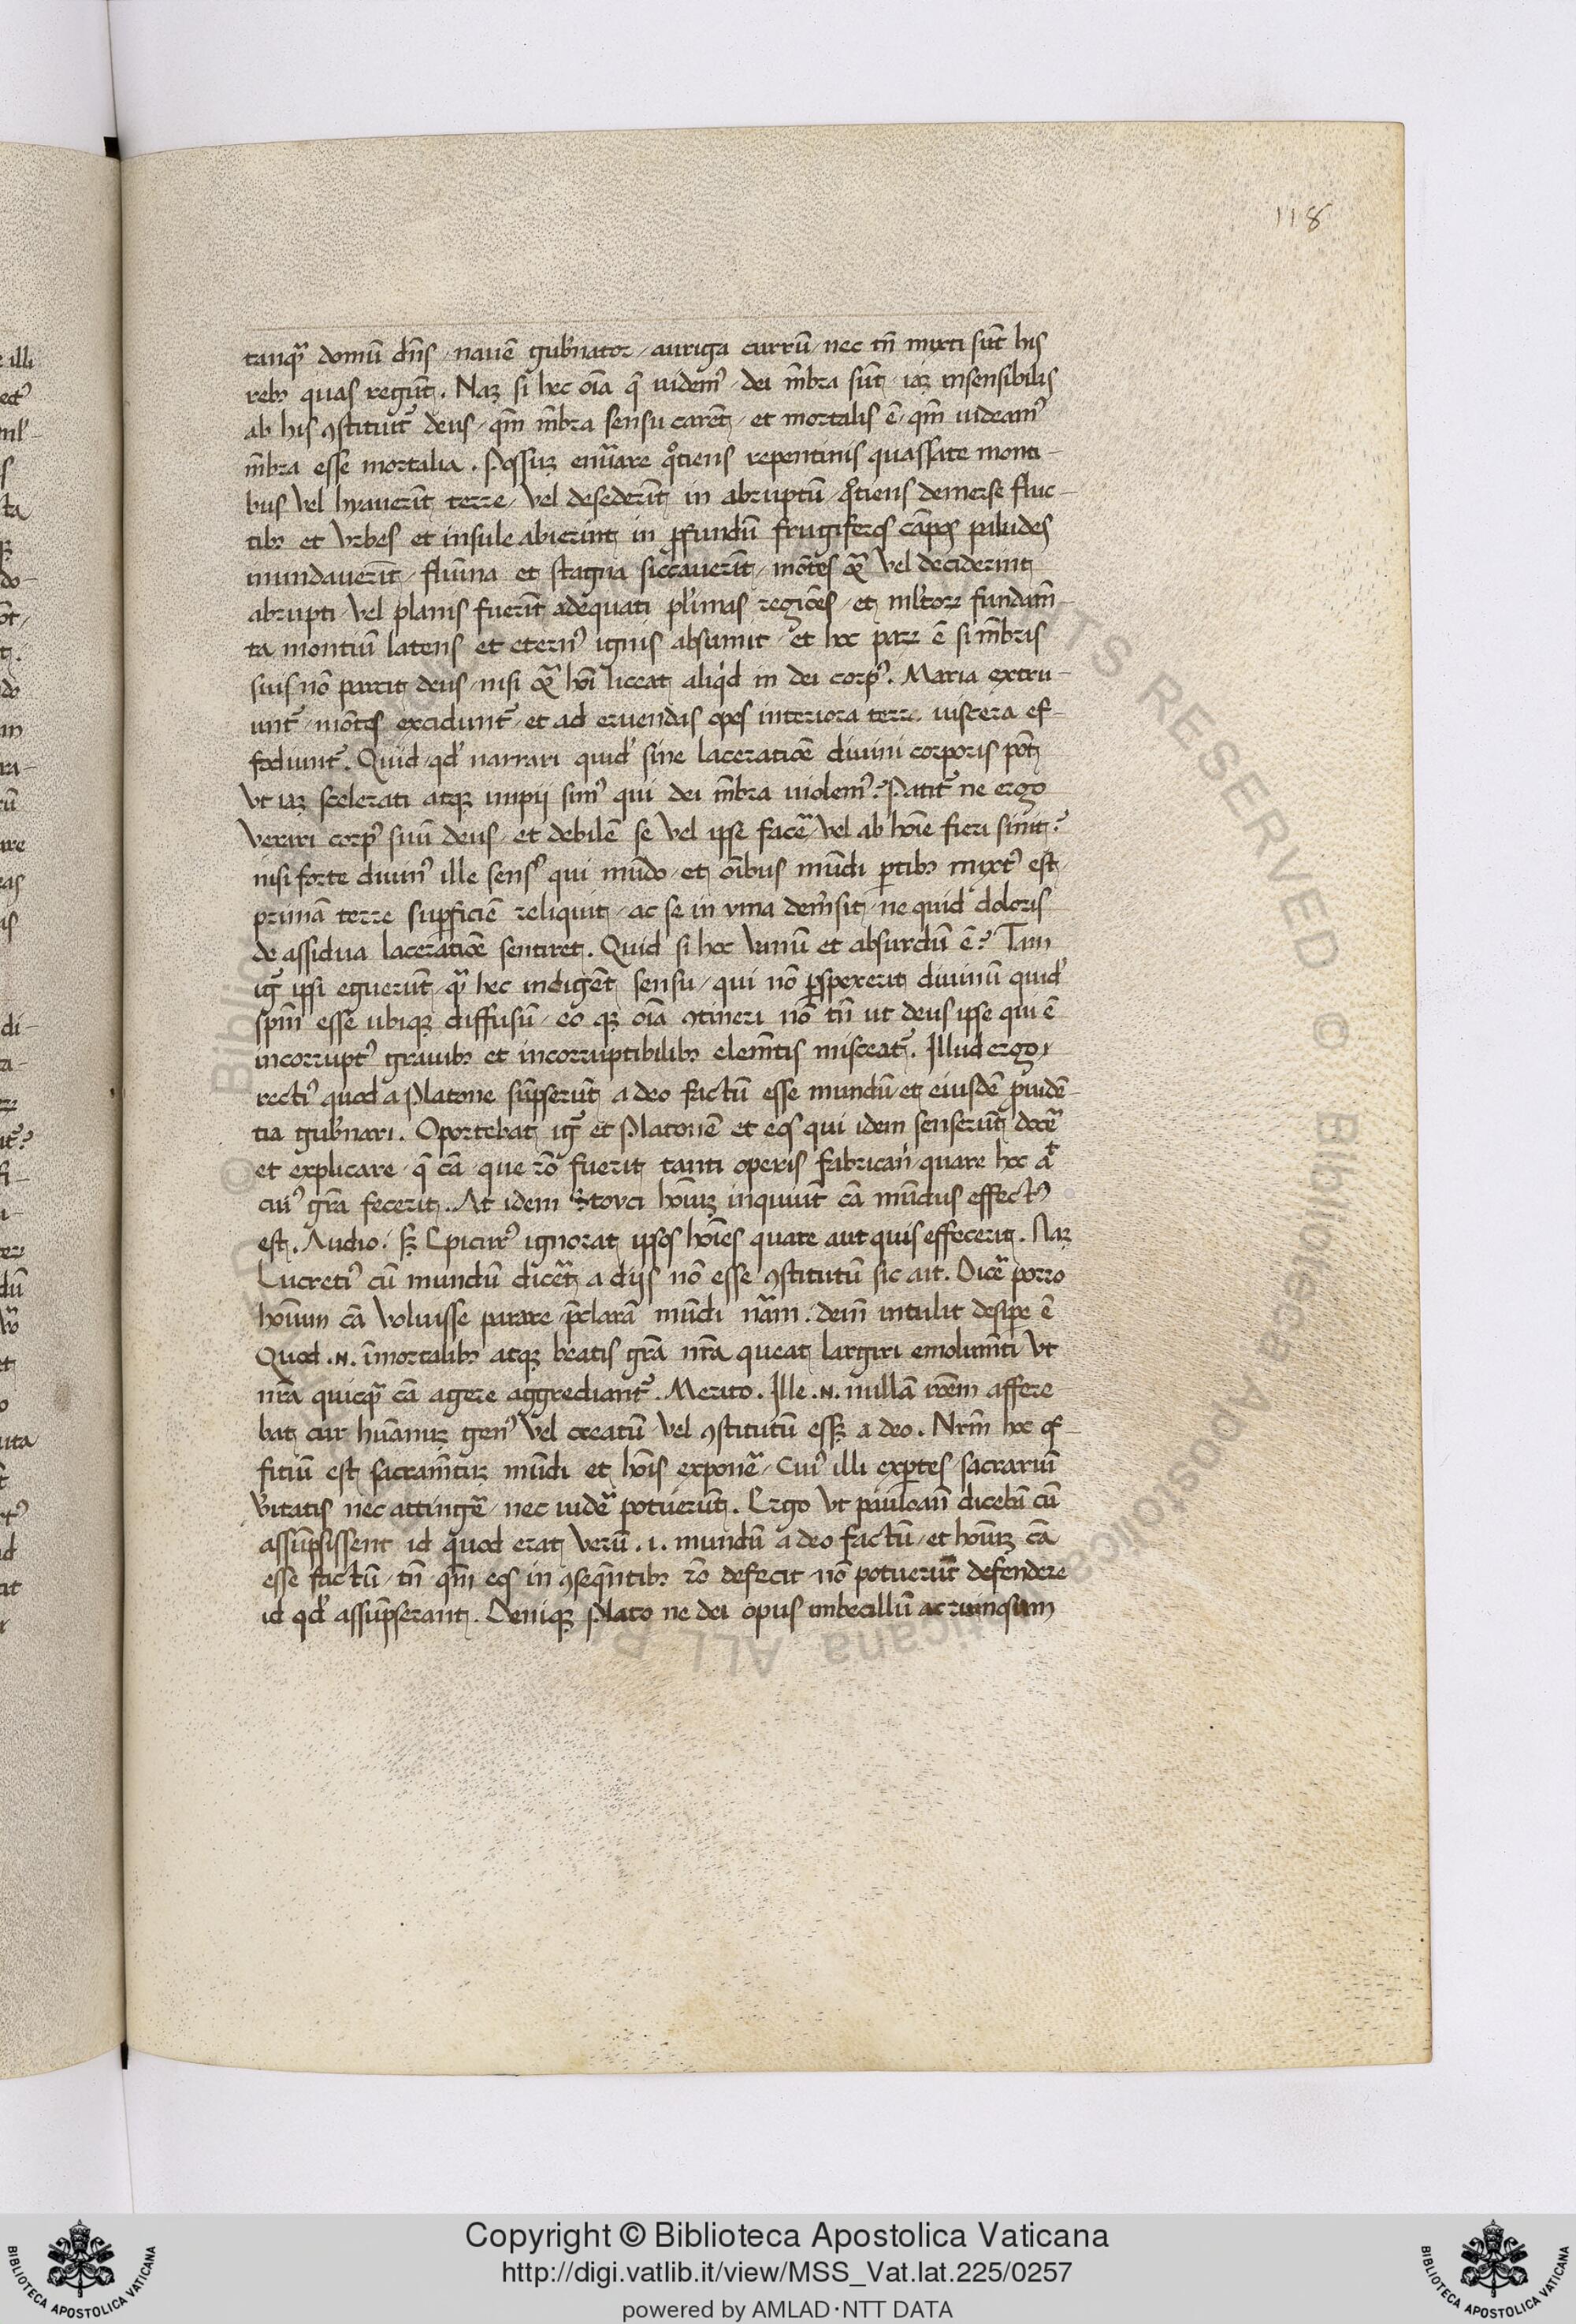 118
tanqᷓ domū dn̄s / nauē gub̄nator / auriga currū / nec tn̄ mixti sūt his
rebꝫ quas regūt. Naꝫ si hec oīa q̄ uidemꝰ dei m̄bra sūt iaꝫ insensibilis
ab his ꝯstituit᷑ deus / qm̄ m̄bra sensu carēt / et mortalis ē qm̄ uideamꝰ
m̄bra esse mortalia. Possuꝫ enu᷑are qͦtiens repentinis quassate monti-
bus vel hyauerīt terre / vel desederīt in abruptū / qͦtiens demerse fluc-
tibꝫ et vrbes et insule abierint in ꝓfundū frugiferos cāpos paludes
inundauerīt / flūina et stagna siccauerīt / mōtes qᷓ vel deciderint
abrupti / vel planis fuerīt adequati pl̄imas regiōes / et ml̄torꝝ fundam̄-
ta montiū latens et eternꝰ ignis absumit / et hoc parꝝ ē si m̄bris
suis nō parcit deus / nisi qᷓ hōi liceat aliqͥd in dei corpꝰ. Maria extru-
unt᷑ / mōtes excidunt᷑ et ad eruendas opes interiora terre uiscera ef-
fodiunt᷑. Quid qd̓ narrari quid̓ sine laceratiōe diuini corporis pōt
vt iaꝫ scelerati atqꝫ impij simꝰ qui dei m̄bra uiolemꝰ? Patit᷑ ne ergo
vexari corpꝰ suū deus / et debilē se vel ipse facē᷑ vel ab hoīe fieri sinit?
nisi forte diuinꝰ ille sensꝰ qui mūdo / et oībus mūdi ꝑtibꝫ mixtꝰ est
primā terre suꝑficiē reliquit / ac se in yma dem̄sit ne quid doloris
de assidua laceratiōe sentiret. Quid si hoc vanū et absurdū ē? Tam
ig᷑ ipsi eguerūt qᷓ hec indigēt sensu / qui nō ꝑspexerit diuinū quid̓
spm̄ esse ubiqꝫ diffusū / eo qꝫ oīa ꝯtineri nō tn̄ ut deus ipse qui ē
incorruptꝰ grauibꝫ et incorruptibilibꝫ elem̄tis misceat᷑. Illud ergo
rectiꝰ quod a Platone sūpserūt a deo factū esse mundū et eiusdē ꝓuidē-
tia gub̄nari. Oportebat ig᷑ et Platonē et eos qui idem senserūt docē᷑
et explicare q̄ cā que rō fuerit tanti operis fabricanͥ quare hoc aᵗ
cuiꝰ grā fecerit. At idem Stoyci hōiuꝫ inquiūt cā mūdus effectꝰ
est. Audio. sꝫ Epicurꝰ ignorat ipsos hōies quare aut quis effecerit. Naꝫ
Lucretiꝰ cū mundū dicē᷑t a dijs nō esse ꝯstitutū sic ait. Dicē᷑ porro
hōium cā voluisse parare / p̄clarā mūdi nām. dein̄ intulit desiꝑe ē
Quod .N. īmortalibꝫ atqꝫ beatis grā nr̄a queat largiri emolum̄ti vt
nr̄a quicqᷓ cā agere aggrediant᷑. Merito. Ille .N. nullā rōem affere
bat cur hūanuꝫ genꝰ vel creatū vel ꝯstitutū essꝫ a deo. Nr̄m hoc of-
fitiū est sacram̄tuꝫ mūdi et hōis exponē᷑ / Cuiꝰ illi exꝑtes / sacrariū
v̄itatis nec attingē᷑ / nec uidē᷑ potuerūt. Ergo vt paulo an̄ dicebā cū
assūpsissent id quod erat verū .i. mundū a deo factū / et hōiuꝫ cā
esse factū / tn̄ qm̄ eos in ꝯseqn̄tibꝫ rō defecit nō potuerūt defendere
id qd̓ assūpserant. Deniqꝫ Plato ne dei opus imbecillū ac ruinosum
Copyright © Biblioteca Apostolica Vaticana
http://digi.vatlib.it/view/MSS_Vat.lat.225/0257
powered by AMLAD·NTT DATA